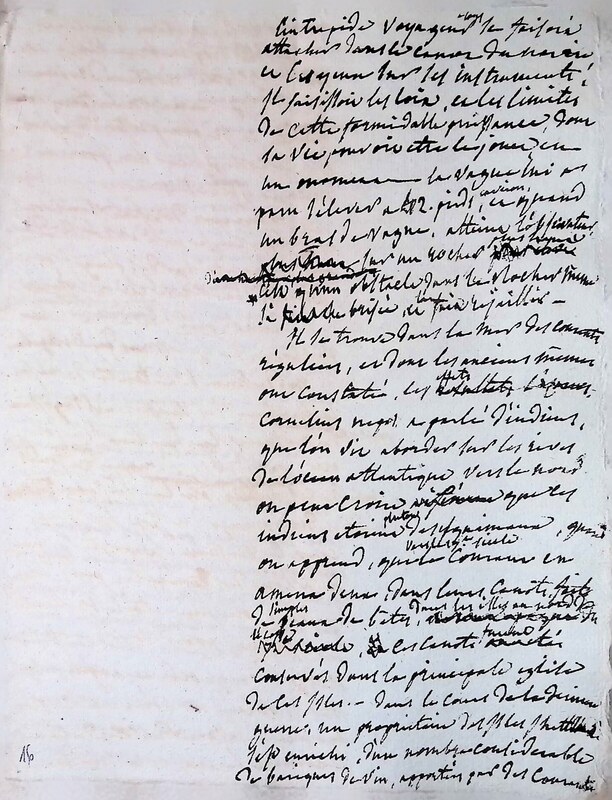 L'intrépide voyageur alors se faisoit
attacher dans le canon du navire
et les yeux sur les instruments,
Il saisissoit les loix, et les limites
de cette formidable puissance, dont
la vie pouvoit être le jouet en
un moment — la vague lui a
paru s'élever a 12. pieds, environ, et quand
un bras de vague, atteint
sur un rocher
qu'un obstacle dans le rocher même
l'a brisée, rejaillir —
Il se trouve dans la mer des courants
réguliers, et dont les anciens mêmes
ont constaté, les effets
Cornelius nepos a parlé d'indiens,
que l'on vit aborder sur les rives
de l'océan atlantique, vers le nord
on peut croire que les
indiens étoient plutot des esquimaux, quand
on apprend, que le Courant en
amena deux, dans leurs Canots,
de simples peaux de bêtes, dans les isles au nord de
l'ecosse, ces Canots furent
conservés dans la principale eglise
de ces isles. — dans le cours de la derniere
guerre, un propriétaire des isles
s'est enrichi, d'un nombre considérable
de bariques de vin, apportées par des Courants
150